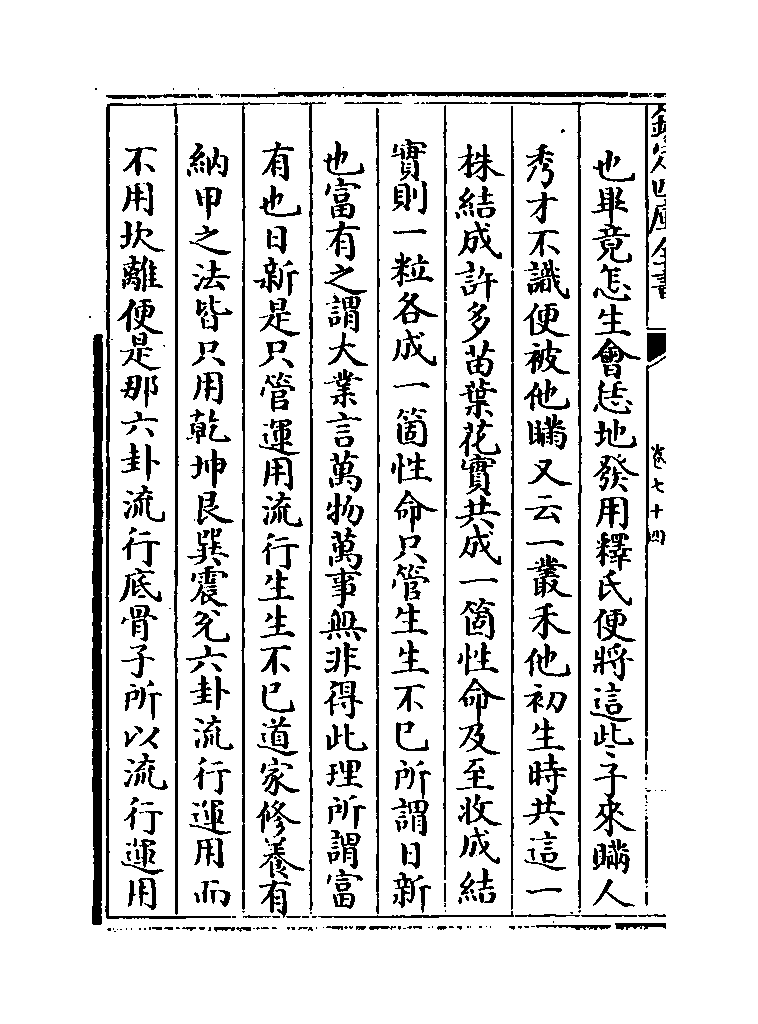 欽定四庫全書
卷七十四
也畢竟怎生會恁地發用釋氏便將這些子來瞞人
秀才不識便被他瞞又云一叢禾他初生時共這一
株結成許多苗葉花實共成一箇性命及至收成結
實則一粒各成一箇性命只管生生不已所謂日新
也富有之謂大業言萬物萬事無非得此理所謂富
有也日新是只管運用流行生生不已道家修養有
納甲之法皆只用乾坤艮巽震兌六卦流行運用而
不用坎離便是那六卦流行底骨子所以流行運用